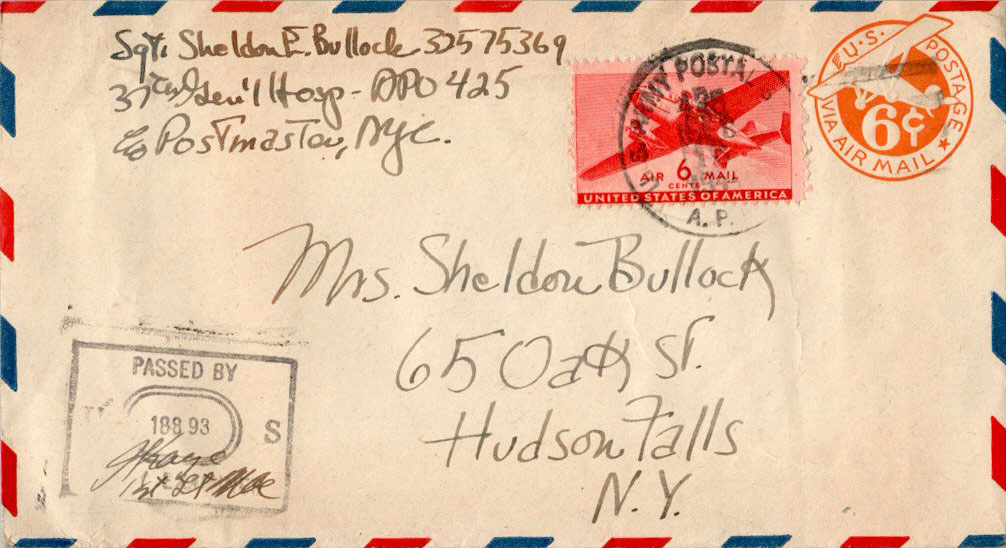 Sgt. Sheldon E. Bullock 32575369
37th Gen'l Hosp - APO 425
c/o Postmaster, NYC.
U.S. POSTAGE
VIA AIR MAIL
6¢
U.S. ARMY POSTAL
A.P.
AIR 6 MAIL
CENTS
UNITED STATES OF AMERICA
Mrs. Sheldon Bullock
65 Oak St.
Hudson Falls
N.Y.
PASSED BY
18893
S
1st Lt